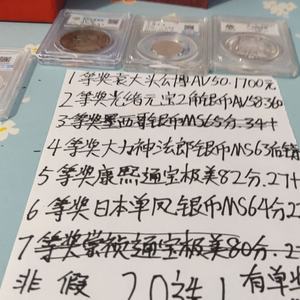 1等奖袁大头公博AV50.1700元
2等奖光绪元宝2角银币AV58 360
3等奖墨西哥银币MS65分.34+
4等奖大力神法郎银币MS63
5等奖康熙通宝极美82分.27+
6等奖日本单凤银币MS64分2
7等奖崇祯通宝极美80分.2
非假 20 有单